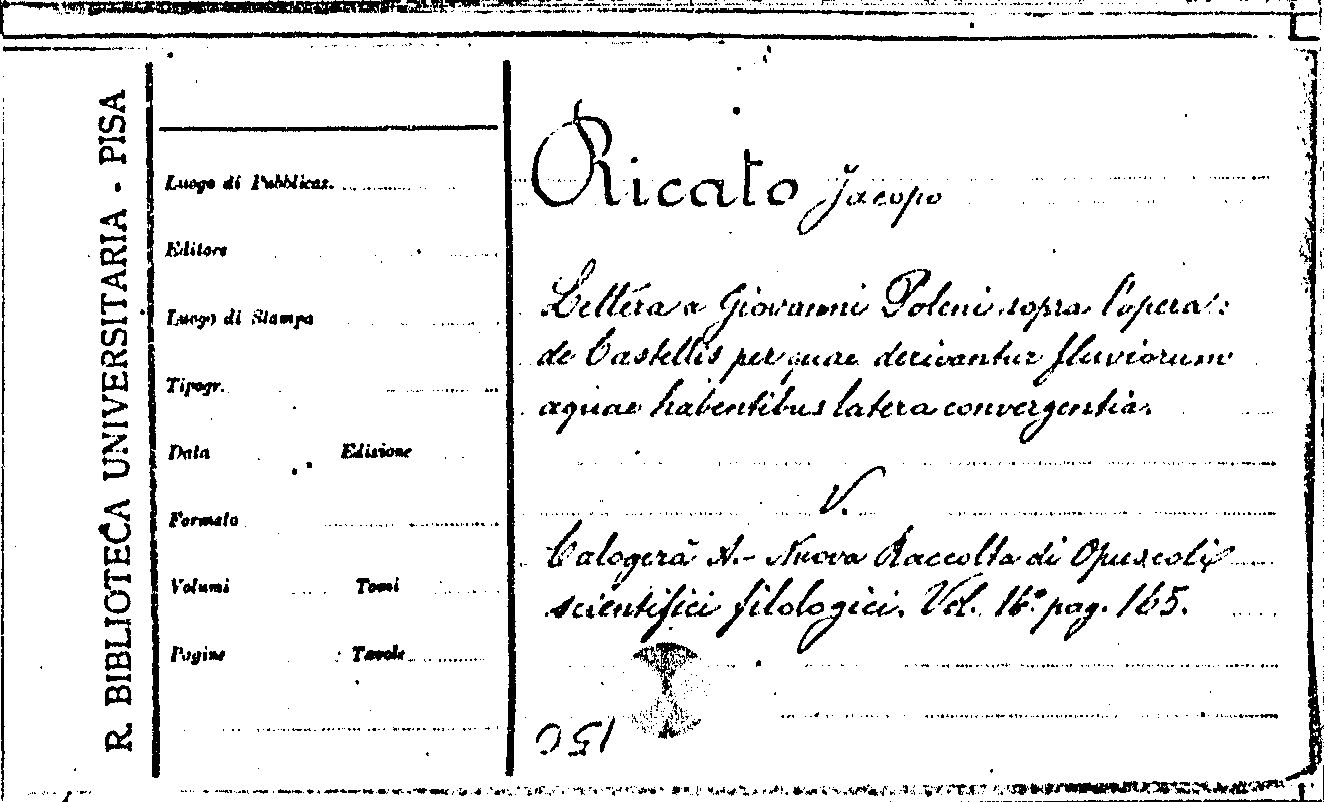 R. BIBLIOTECA UNIVERSITARIA - PISA
Luogo di Pubblicaz.
Editore
Luogo di Stampa
Tipogr.
Data Edizione
Formato
Volumi Tomi
Pagine Tavole
Ricato Jacopo
Lettera a Giovanni Poleni sopra l'opera:
de Castellis per quae derivantur fluviorum
aquae habentibus latera convergentia.
V.
Calogerà A. - Nuova Raccolta di Opuscoli
scientifici filologici. Vol. 16° pag. 165.